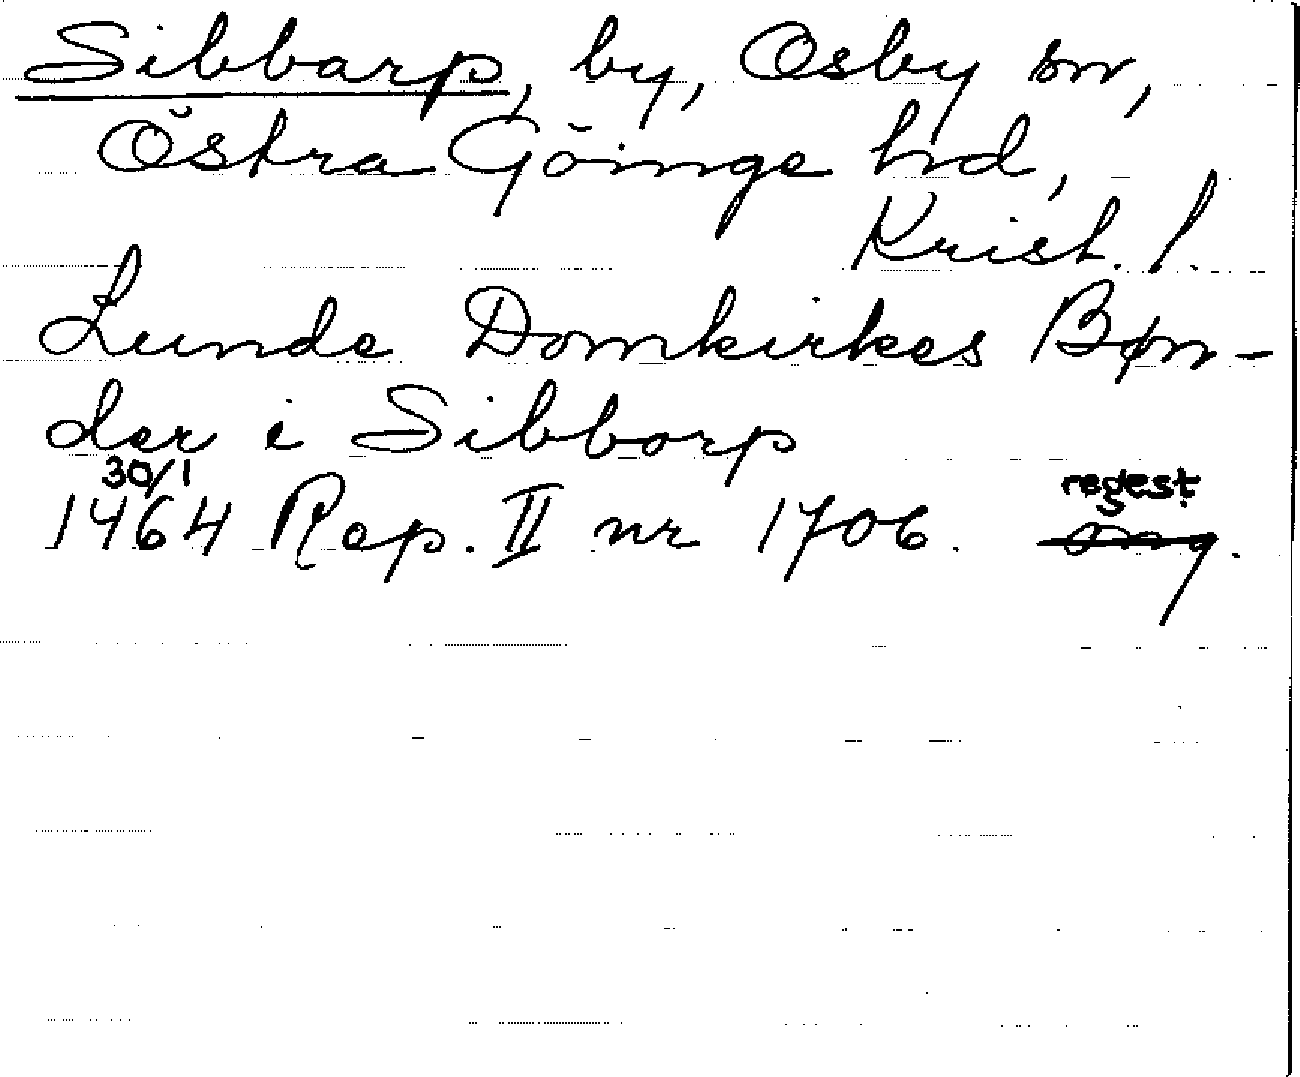 Sibbarp, by, Osby sn,
Östra Göinge hd,
Krist. l.
Lunde Domkirkes Bøn-
der i Sibborp
30/1 regest
1464 Rep. II nr 1706.